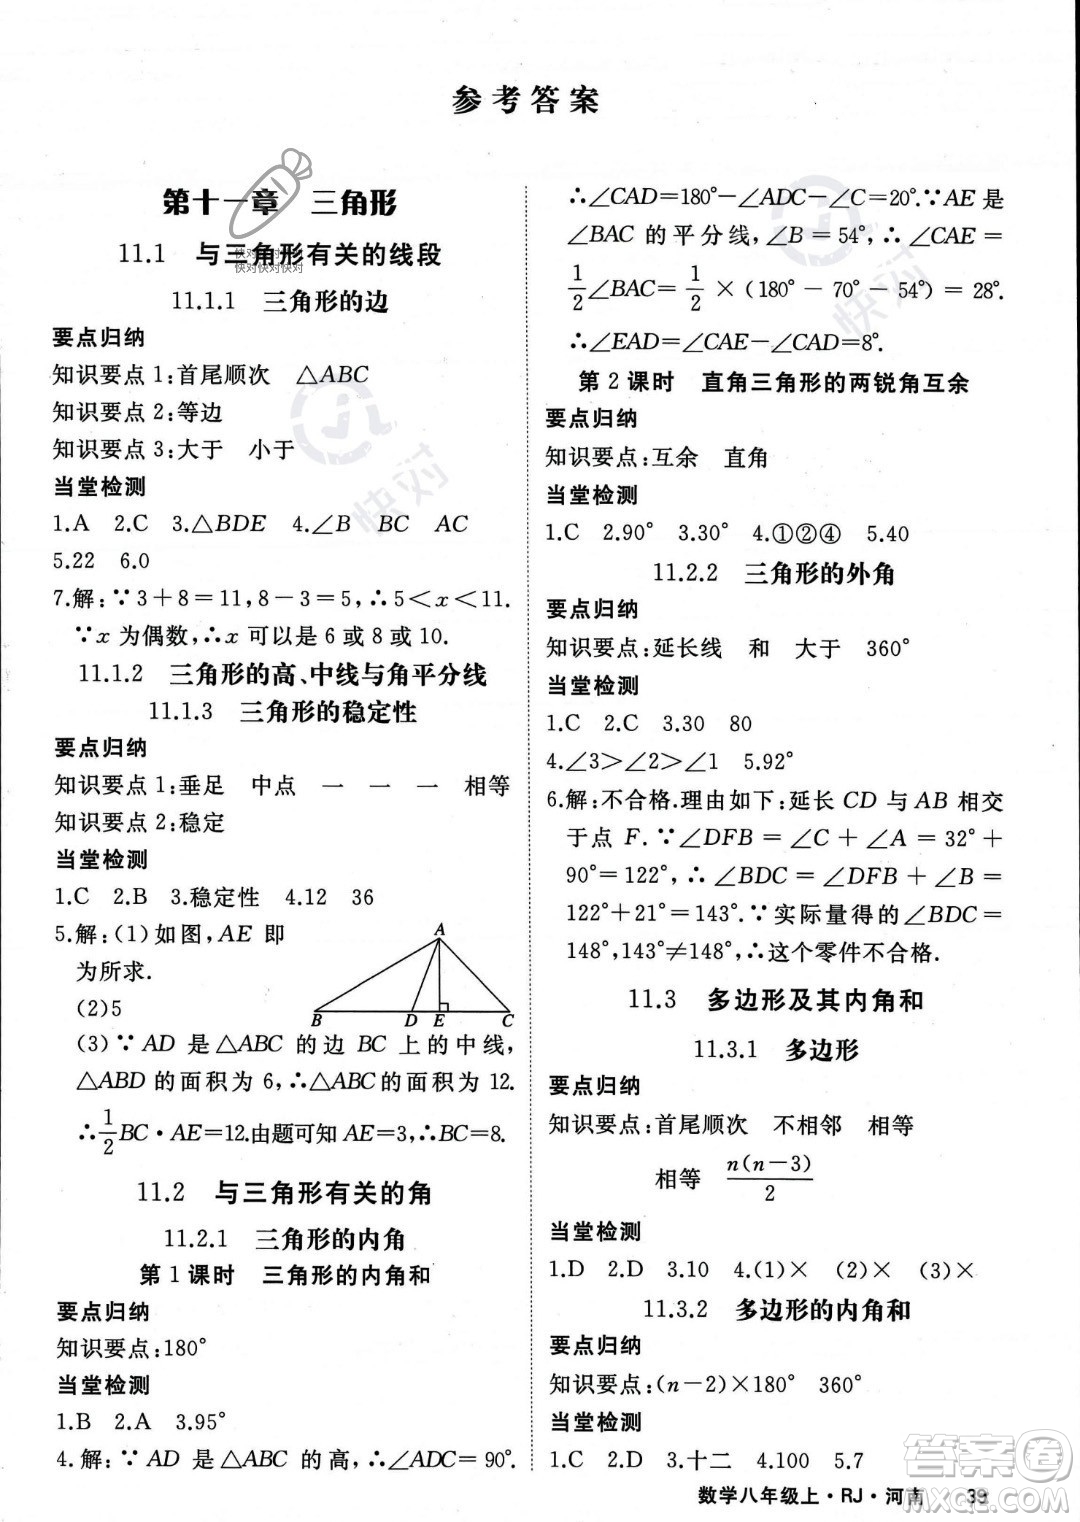 参考答案
第十一章 三角形
11.1 与三角形有关的线段
快对快对快对
快对快对快对
11.1.1 三角形的边
要点归纳
知识要点1:首尾顺次 △ABC
知识要点2:等边
知识要点3:大于 小于
当堂检测
1.A 2.C 3.△BDE 4.∠B BC AC
5.22 6.0
7.解:∵3+8=11,8-3=5,∴5<x<11.
∵x为偶数,∴x可以是6或8或10.
11.1.2 三角形的高、中线与角平分线
11.1.3 三角形的稳定性
要点归纳
知识要点1:垂足 中点 一 一 一 相等
知识要点2:稳定
当堂检测
1.C 2.B 3.稳定性 4.12 36
5.解:(1)如图,AE即
为所求.
(2)5
A
B D E C
(3)∵AD是△ABC的边BC上的中线,
△ABD的面积为6,∴△ABC的面积为12.
∴1/2BC·AE=12.由题可知AE=3,∴BC=8.
11.2 与三角形有关的角
11.2.1 三角形的内角
第1课时 三角形的内角和
要点归纳
知识要点:180°
当堂检测
1.B 2.A 3.95°
4.解:∵AD是△ABC的高,∴∠ADC=90°.
∴∠CAD=180°-∠ADC-∠C=20°.∵AE是
∠BAC的平分线,∠B=54°,∴∠CAE=
1/2∠BAC=1/2×(180°-70°-54°)=28°.
∴∠EAD=∠CAE-∠CAD=8°.
第2课时 直角三角形的两锐角互余
要点归纳
知识要点:互余 直角
当堂检测
1.C 2.90° 3.30° 4.①②④ 5.40
11.2.2 三角形的外角
要点归纳
知识要点:延长线 和 大于 360°
当堂检测
1.C 2.C 3.30 80
4.∠3>∠2>∠1 5.92°
6.解:不合格.理由如下:延长CD与AB相交
于点F.∵∠DFB=∠C+∠A=32°+
90°=122°,∴∠BDC=∠DFB+∠B=
122°+21°=143°.∵实际量得的∠BDC=
148°,143°≠148°,∴这个零件不合格.
11.3 多边形及其内角和
11.3.1 多边形
要点归纳
知识要点:首尾顺次 不相邻 相等
相等 n(n-3)/2
当堂检测
1.D 2.D 3.10 4.(1)× (2)× (3)×
11.3.2 多边形的内角和
要点归纳
知识要点:(n-2)×180° 360°
当堂检测
1.C 2.D 3.十二 4.100 5.7
数学八年级上·RJ·河南 39
快对
快对
答案圈
MXQE.COM